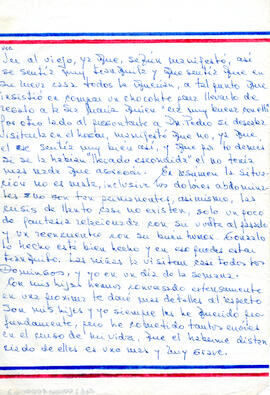 ver al viejo, ya que, según manifestó, así
se sentía muy tranquila y que sentía que en
su nueva casa todos la querían, a tal punto que
insistió en comprar un chocolate para llevarlo de
regalo a la Sra María quien "era muy buena con ella"
por otro lado al preguntarle a Dn. Pedro si deseaba
visitarla en el hogar, manifestó que no, ya que
el se sentía muy bien así, y que por lo demás
se la habían "llevado escondida" el no tenía
mas nada que agregar. En resumen la situa-
ción no es mala, inclusive los dolores abdomina-
les no son tan permanentes, asimismo, las
crisis de llanto casi no existen, solo un poco
de fantasía relacionada con su vuelta al pasado
y un reencuentro con su buen humor. Gonzalo
lo hecho está bien hecho y en eso puedes estar
tranquilo. Las niñas la visitan casi todos los
Domingos, y yo en un día de la semana.
Con mis hijos hemos conversado extensamente
en una próxima te daré mas detalles al respecto
Son mis hijos y yo siempre los he querido pro-
fundamente, pero he cometido tantos errores
en el curso de mi vida, que el haberme distan-
ciado de ellos es uno mas y muy grave.